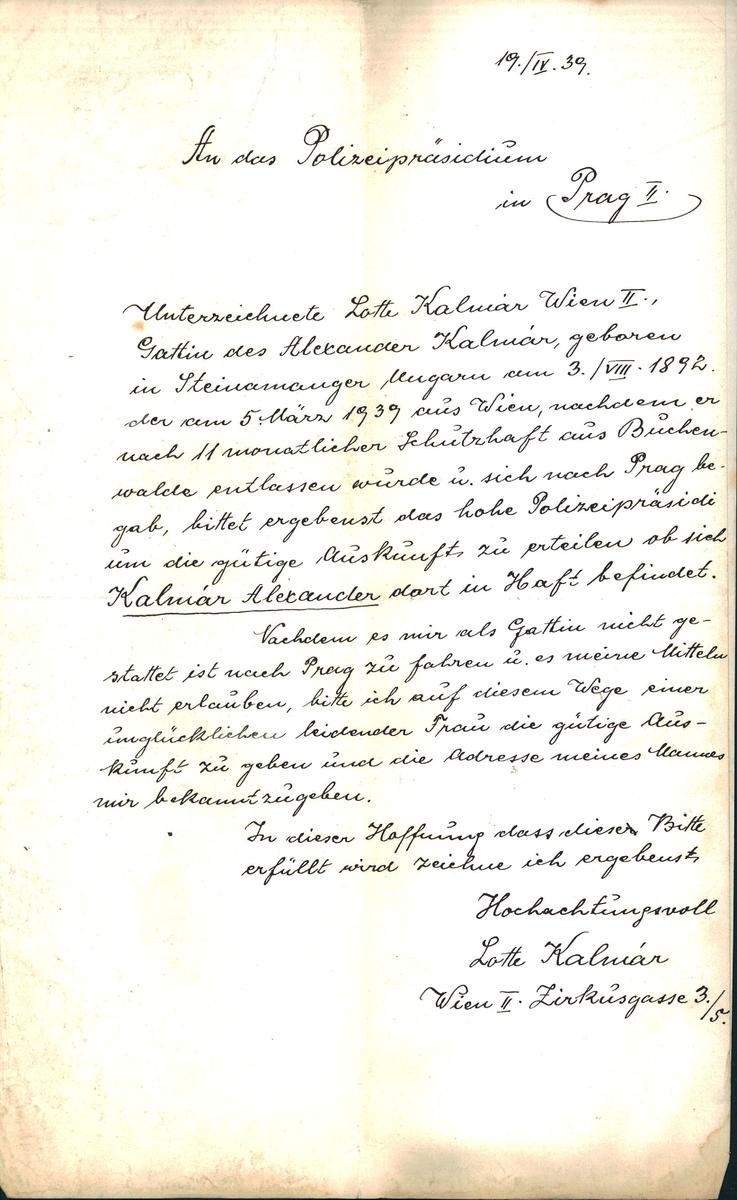 19./IV. 39.
An das Polizeipräsidium
in Prag II.
Unterzeichnete Lotte Kalmár Wien II.,
Gattin des Alexander Kalmár, geboren
in Steinamanger Ungarn am 3./VIII. 1892.
der am 5 März 1939 aus Wien, nachdem er
nach 11 monatlicher Schutzhaft aus Buchen-
walde entlassen wurde u. sich nach Prag be-
gab, bittet ergebenst das hohe Polizeipräsidi
um die gütige Auskunft zu erteilen ob sich
Kalmár Alexander dort in Haft befindet.
Nachdem es mir als Gattin nicht ge-
stattet ist nach Prag zu fahren u. es meine Mitteln
nicht erlauben, bitte ich auf diesem Wege einer
unglücklichen leidender Frau die gütige Aus-
kunft zu geben und die Adresse meines Mannes
mir bekanntzugeben.
In dieser Hoffnung dass dieser Bitte
erfüllt wird zeichne ich ergebenst
Hochachtungsvoll
Lotte Kalmár
Wien II. Zirkusgasse 3./5.